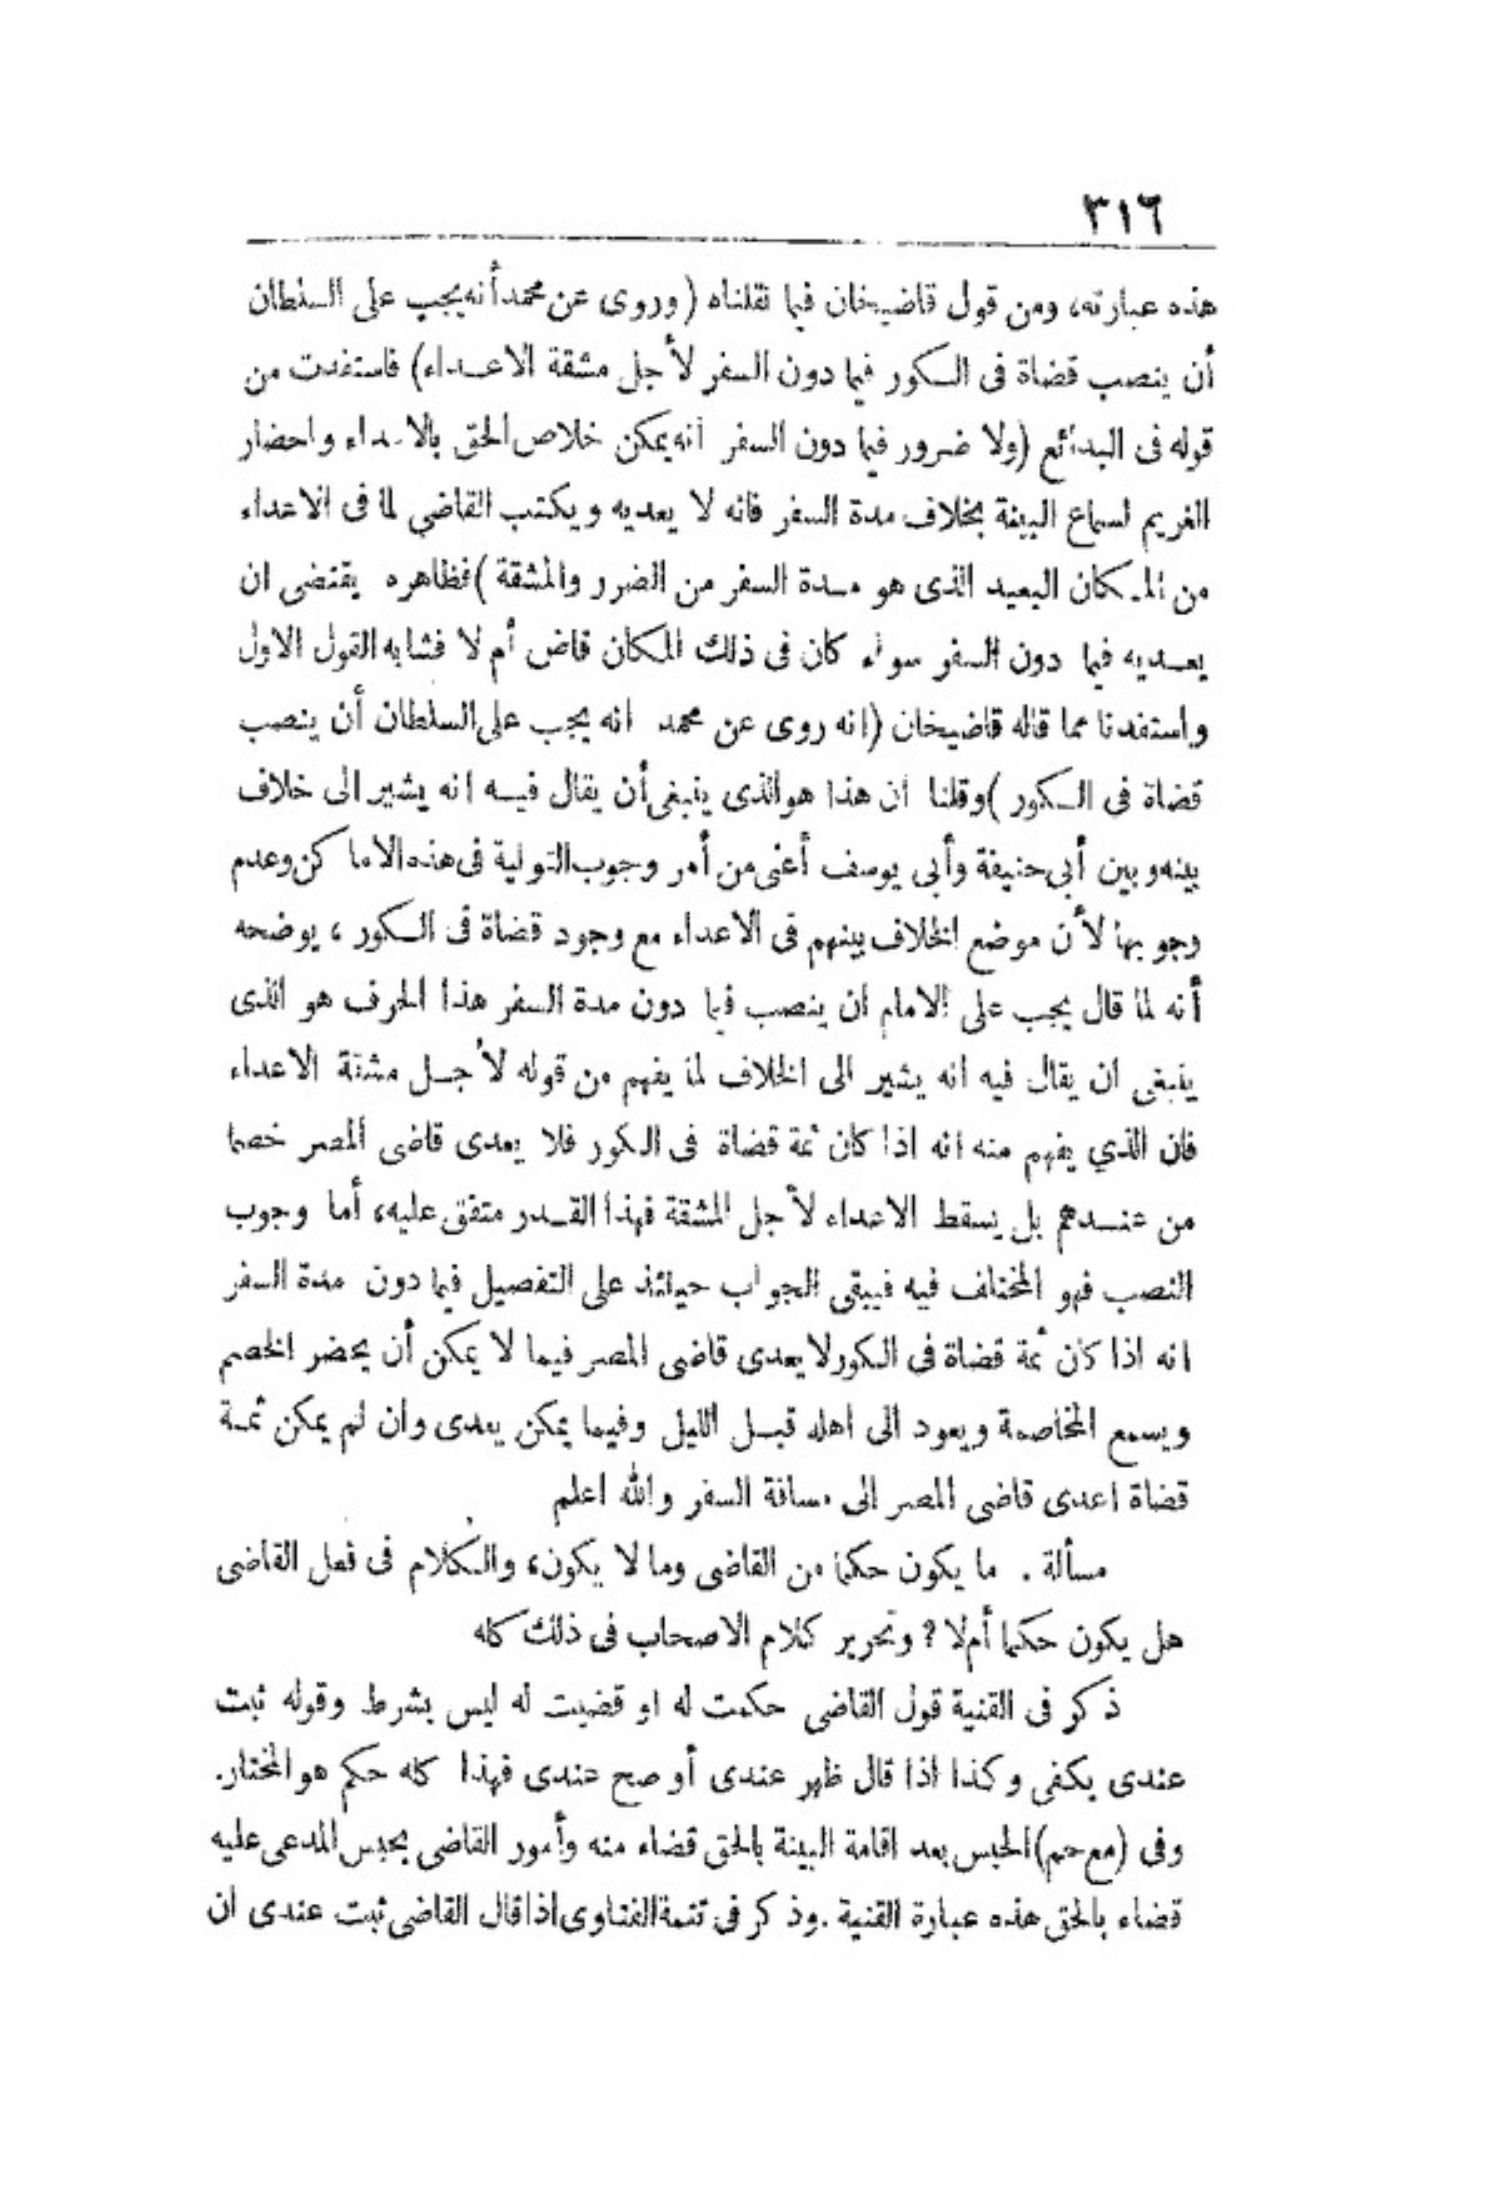 ٣١٦
هذه عبارته، ومن قول قاضيخان فيما نقلناه (وروى عن محمد أنه يجب على السلطان
أن ينصب قضاة فى الكور فيما دون السفر لأجل مشقة الاعداء) فاستفدت من
قوله فى البدائع (ولا ضرور فيما دون السفر انه يمكن خلاص الحق بالاعداء واحضار
الغريم لسماع البينة بخلاف مدة السفر فانه لا يعديه ويكتب القاضي لما فى الاعداء
من المكان البعيد الذى هو مدة السفر من الضرر والمشقة) فظاهره يقتضى ان
يعديه فيما دون السفر سواء كان فى ذلك المكان قاض أم لا فشابه القول الاول
واستفدنا مما قاله قاضيخان (انه روى عن محمد انه يجب على السلطان أن ينصب
قضاة فى الكور) وقلنا ان هذا هو الذى ينبغى أن يقال فيه انه يشير الى خلاف
بينه وبين أبى حنيفة وأبى يوسف أعنى من أمر وجوب التولية فى هذه الاماكن وعدم
وجوبها لأن موضع الخلاف بينهم فى الاعداء مع وجود قضاة فى الكور، يوضحه
أنه لما قال يجب على الامام ان ينصب فيما دون مدة السفر هذا الحرف هو الذى
ينبغى ان يقال فيه انه يشير الى الخلاف لما يفهم من قوله لأجل مشقة الاعداء
فان الذي يفهم منه انه اذا كان ثمة قضاة فى الكور فلا يعدى قاضى المصر خصما
من عندهم بل يسقط الاعداء لأجل المشقة فهذا القدر متفق عليه، أما وجوب
النصب فهو المختلف فيه فيبقى الجواب حينئذ على التفصيل فيما دون مدة السفر
انه اذا كان ثمة قضاة فى الكور لا يعدى قاضى المصر فيما لا يمكن أن يحضر الخصم
ويسمع المخاصمة ويعود الى اهله قبل الليل وفيما يمكن يعدى وان لم يمكن ثمة
قضاة اعدى قاضى المصر الى مسافة السفر والله اعلم
مسألة . ما يكون حكما من القاضى وما لا يكون، والكلام فى فعل القاضى
هل يكون حكما أم لا؟ وتحرير كلام الاصحاب فى ذلك كله
ذكر فى القنية قول القاضى حكمت له او قضيت له ليس بشرط وقوله ثبت
عندى يكفى وكذا اذا قال ظهر عندى أو صح عندى فهذا كله حكم هو المختار.
وفى (مع حم) الحبس بعد اقامة البينة بالحق قضاء منه وأمور القاضى بحبس المدعى عليه
قضاء بالحق هذه عبارة القنية . وذكر فى تتمة الفتاوى اذا قال القاضى ثبت عندى ان